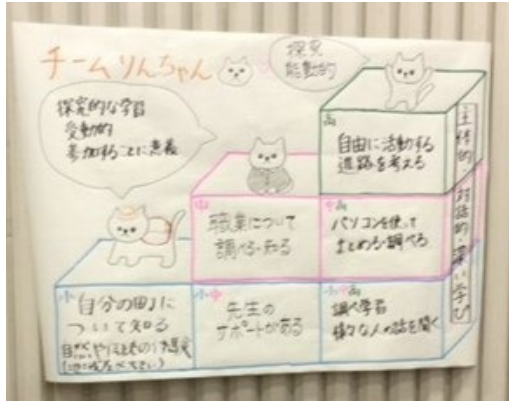 チームりんちゃん
探究
能動的
探究的な学習
受動的
参加することに意義
高
自由に活動する
進路を考える
中
職業について
調べる・知る
中高
パソコンを使って
まとめる・調べる
小
自分の町に
ついて知る
自然や
小中
先生の
サポートがある
小中高
調べ学習
様々な人の話を聞く
主体的・対話的・深い学び